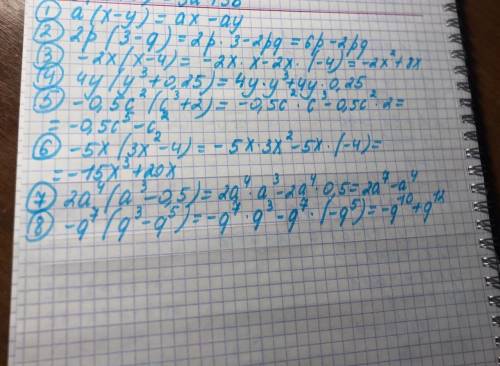 ① a(x-y) = ax - ay
② 2p(3-q) = 2p · 3 - 2pq = 6p - 2pq
③ -2x(x-4) = -2x · x - 2x · (-4) = -2x² + 8x
④ 4y(y³+0,25) = 4y · y³ + 4y · 0,25
⑤ -0,5c²(c³+2) = -0,5c² · c³ - 0,5c² · 2 =
= -0,5c⁵ - c²
⑥ -5x(3x²-4) = -5x · 3x² - 5x · (-4) =
= -15x³ + 20x
⑦ 2a⁴(a³-0,5) = 2a⁴ · a³ - 2a⁴ · 0,5 = 2a⁷ - a⁴
⑧ -q⁷(q³-q⁵) = -q⁷ · q³ - q⁷ · (-q⁵) = -q¹⁰ + q¹²